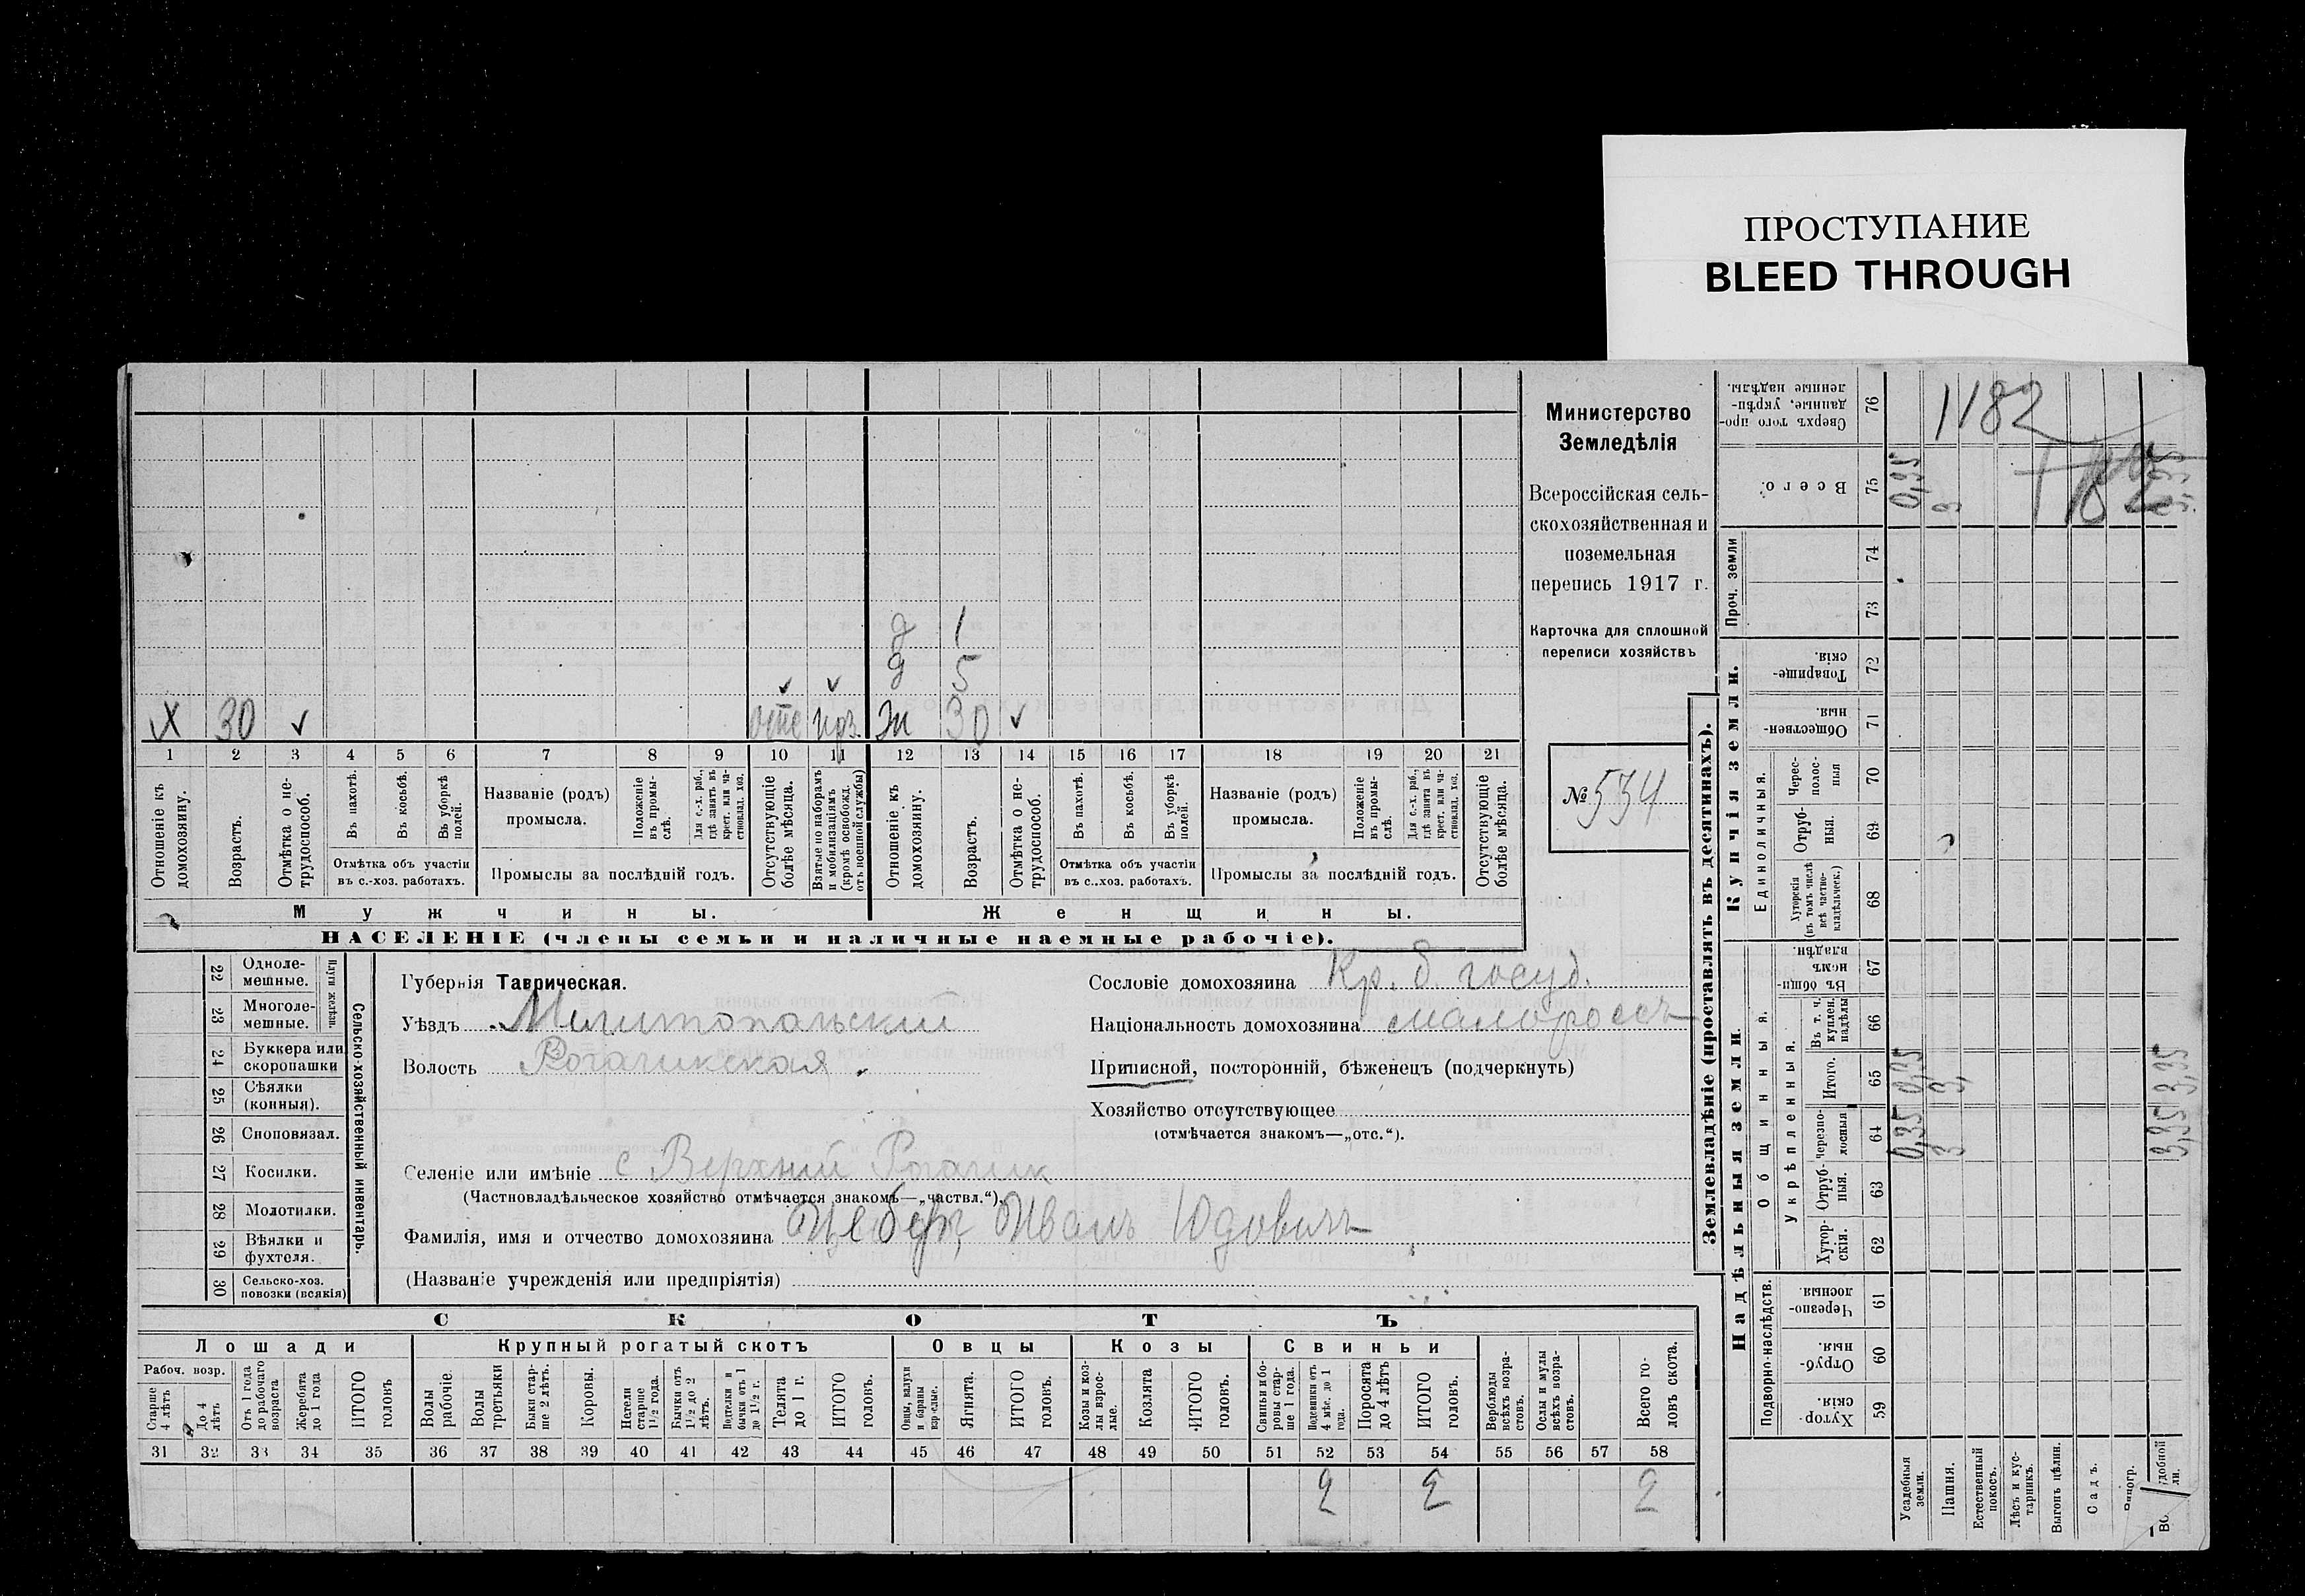 ПРОСТУПАНИЕ
BLEED THROUGH
Министерство
Земледѣлія
Всероссійская сель-
скохозяйственная и
поземельная
перепись 1917 г.
Карточка для сплошной
переписи хозяйствъ
№ 534
д 1
д 5
Х 30 ✓ ж 30 ✓
1 2 3 4 5 6 7 8 9 10 11 12 13 14 15 16 17 18 19 20 21
Отношеніе къ домохозяину.
Возрастъ.
Отмѣтка о не-трудоспособ.
Въ пахотѣ.
Въ косьбѣ.
Въ уборкѣ полей.
Отмѣтка объ участіи
въ с.-хоз. работахъ.
Названіе (родъ)
промысла.
Положеніе въ промы-слѣ.
Для с.-х. раб., гдѣ занятъ въ крест. или ча-стновлад. хоз.
Промыслы за послѣдній годъ.
Отсутствующіе болѣе мѣсяца.
Взятые по наборамъ и мобилизаціямъ (кромѣ освобожд. отъ военной службы)
Отношеніе къ домохозяину.
Возрастъ.
Отмѣтка о не-трудоспособ.
Въ пахотѣ.
Въ косьбѣ.
Въ уборкѣ полей.
Отмѣтка объ участіи
въ с.-хоз. работахъ.
Названіе (родъ)
промысла.
Положеніе въ промы-слѣ.
Для с.-х. раб., гдѣ занята въ крест. или ча-стновлад. хоз.
Промыслы за послѣдній годъ.
Отсутствующіе болѣе мѣсяца.
Мужчины. Женщины.
НАСЕЛЕНІЕ (члены семьи и наличные наемные рабочіе).
22 Одноле-мешные.
23 Многоле-мешные.
Плуги желѣзн.
24 Буккера или скоропашки
25 Сѣялки (конныя).
26 Сноповязал.
27 Косилки.
28 Молотилки.
29 Вѣялки и фухтеля.
30 Сельско-хоз. повозки (всякія)
Сельско-хозяйственный инвентарь.
Губернія Таврическая.
Уѣздъ Мелитопольский
Волость Рогачикская
Селеніе или имѣніе с Верхний Рогачик
(Частновладѣльческое хозяйство отмѣчается знакомъ—„частвл.“).
Фамилія, имя и отчество домохозяина Цебер, Иванъ Юдовичъ
(Названіе учрежденія или предпріятія)
Сословіе домохозяина Кр. б. госуд.
Національность домохозяина малороссъ
Приписной, посторонній, бѣженецъ (подчеркнуть)
Хозяйство отсутствующее
(отмѣчается знакомъ—„отс.“).
СКОТЪ
Лошади Крупный рогатый скотъ Овцы Козы Свиньи
Рабоч. возр.
Старше 4 лѣтъ
До 4 лѣтъ
Отъ 1 года до рабочаго возраста
Жеребята до 1 года
ИТОГО головъ
Волы рабочіе.
Волы третьяки
Быки стар-ше 2 лѣтъ.
Коровы.
Нетели старше 1½ года.
Бычки отъ 1½ до 2 лѣтъ.
Подтелки и бычки отъ 1 до 1½ г.
Телята до 1 г.
ИТОГО головъ.
Овцы, валухи и бараны взрослые.
Ягнята.
ИТОГО головъ.
Козы и коз-лы взрос-лые.
Козлята
ИТОГО головъ.
Свиньи и бо-ровы стар-ше 1 года.
Подсвинки отъ 4 мѣс. до 1 года.
Поросята до 4 лѣтъ
ИТОГО головъ.
Верблюды всѣхъ возра-стовъ.
Ослы и мулы всѣхъ возра-стовъ.
Всего го-ловъ скота.
31 32 33 34 35 36 37 38 39 40 41 42 43 44 45 46 47 48 49 50 51 52 53 54 55 56 57 58
2 2 2
Землевладѣніе (проставлять въ десятинахъ).
Надѣльныя земли.
Купчія земли.
Проч. земли
Подворно-наслѣдств.
Общинныя.
Укрѣпленныя.
Единоличныя.
Хутор-скія. 59
Отруб-ныя. 60
Черезпо-лосныя. 61
Хутор-скія. 62
Отруб-ныя. 63
Черезпо-лосныя 64
Итого. 65
Въ т. ч. куплен. надѣлы 66
Въ общин-номъ владѣн. 67
Хуторскія (въ томъ числѣ всѣ частно-владѣльческ.) 68
Отруб-ныя. 69
Черес-полос-ныя 70
Обществен-ныя. 71
Товарище-скія. 72
73
74
Всего. 75
Сверхъ того про-данные, укрѣп-ленные надѣлы. 76
1182
0,35 0,35
3 3
3,35 3,35
Усадебныя земли.
Пашня.
Естественный покосъ.
Лѣсъ и кус-тарникъ.
Выгонъ цѣлин.
Садъ.